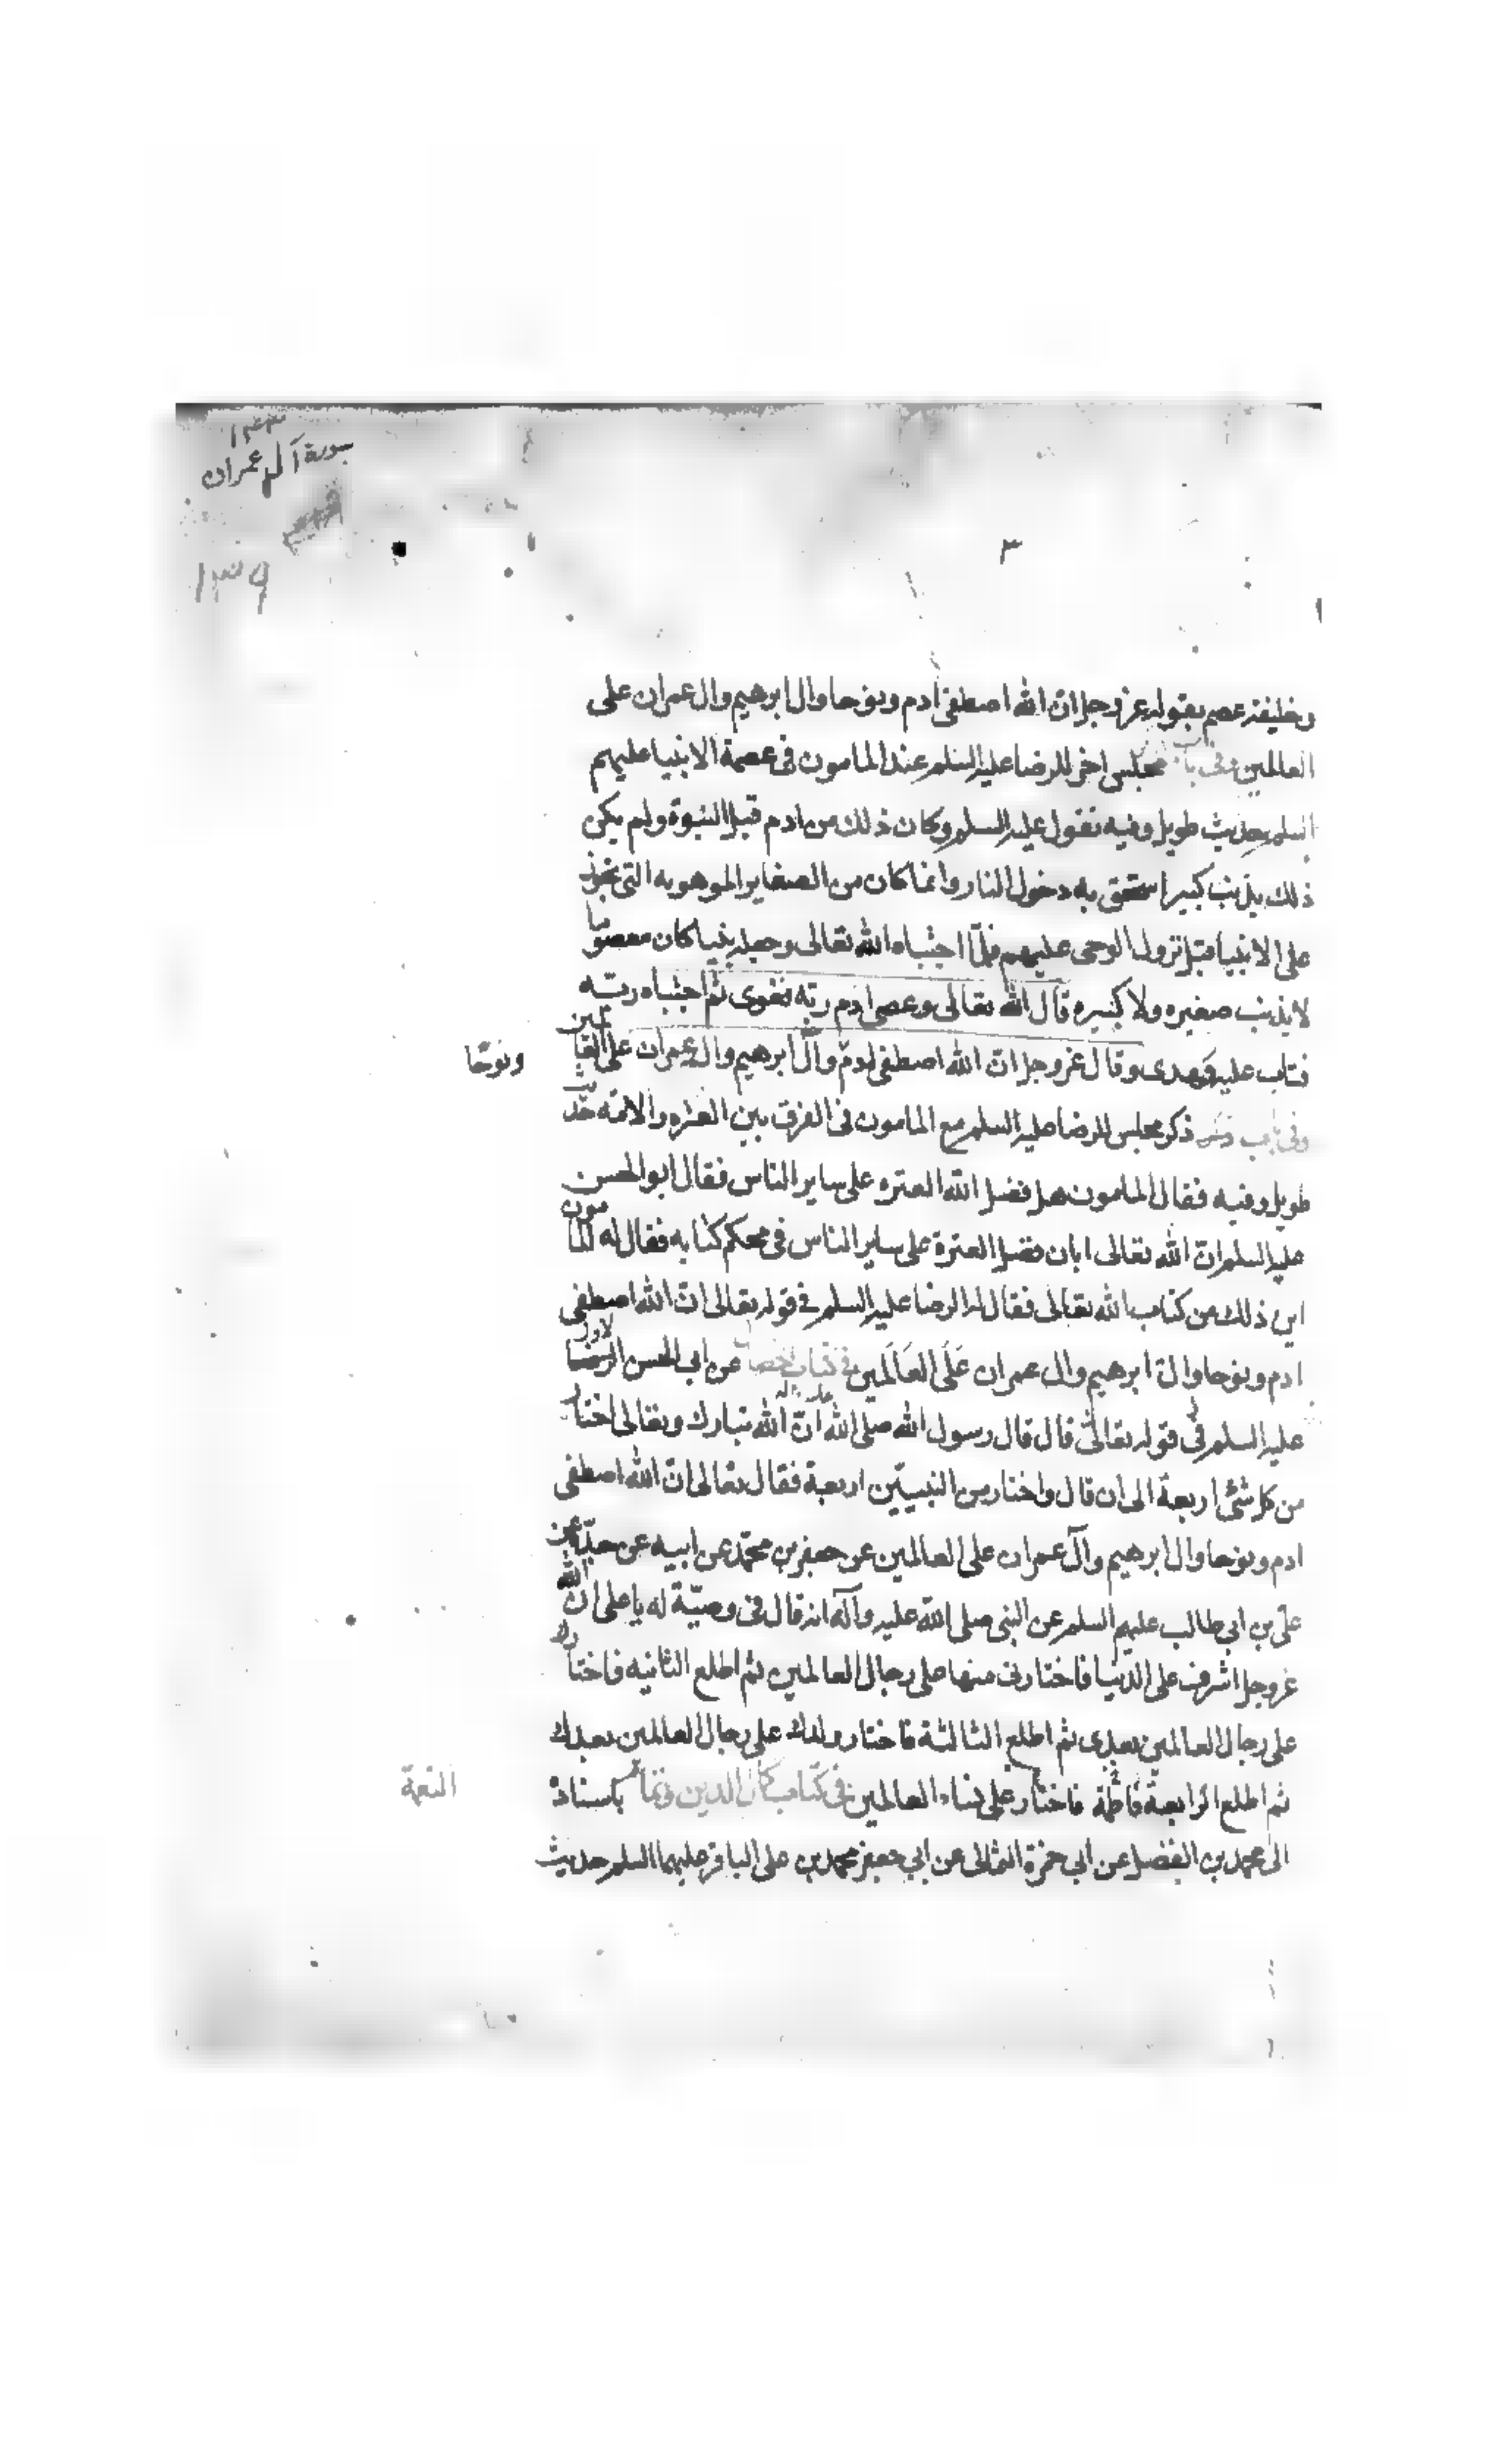 ١٤٣
سورة آل عمران
١٣٩
٣
وخليفته عصم بقوله عز وجل ان الله اصطفى ادم ونوحا وال ابرهيم وال عمران على
العالمين وفى باب مجلس اخر للرضا عليه السلم عند المامون فى عصمة الانبيا عليهم
السلم حديث طويل وفيه يقول عليه السلم وكان ذلك من ادم قبل النبوة ولم يكن
ذلك بذنب كبير استحق به دخول النار وانما كان من الصغاير الموهوبه التى تجوز
على الانبيا قبل نزول الوحى عليهم فلما اجتباه الله تعالى وجعله نبيا كان معصوما
لا يذنب صغيره ولا كبيره قال الله تعالى وعصى ادم ربه فغوى ثم اجتباه ربه
فتاب عليه وهدى وقال عز وجل ان الله اصطفى ادم وآل ابرهيم وال عمران على العالمين
ونوحًا
وفى باب ذكر مجلس للرضا عليه السلم مع المامون فى الفرق بين العتره والامه حديث
طويل وفيه فقال المامون هل فضل الله العتره على ساير الناس فقال ابو الحسن
عليه السلم ان الله تعالى ابان فضل العترة على ساير الناس فى محكم كتابه فقال له المامون
اين ذلك من كتاب الله تعالى فقال له الرضا عليه السلم فى قوله تعالى ان الله اصطفى
ادم ونوحا وال ابرهيم وال عمران عَلَى العَالَمين فى كتاب الخصال عن ابى الحسن الاول
عليه السلم فى قوله تعالى قال قال رسول الله صلى الله عليه وآله ان الله تبارك وتعالى اختار
من كل شئ اربعة الى ان قال واختار من النبيين اربعة فقال تعالى ان الله اصطفى
ادم ونوحا وال ابرهيم وآل عمران على العالمين عن جعفر بن محمد عن ابيه عن جده عن
على بن ابى طالب عليهم السلم عن النبى صلى الله عليه وآله انه قال فى وصيّة له يا على ان الله
عز وجل اشرف على الدنيا فاختارنى منها على رجال العالمين ثم اطلع الثانيه فاختارك
على رجال العالمين بعدى ثم اطلع الثالثة فاختار ولدك على رجال العالمين بعدك
ثم اطلع الرابعة فاختار فاطمة على نساء العالمين فى كتاب كمال الدين وتمام باسناده
النعمة
الى محمد بن الفضيل عن ابى حمزة الثمالى عن ابى جعفر محمد بن على الباقر عليهما السلم حديث